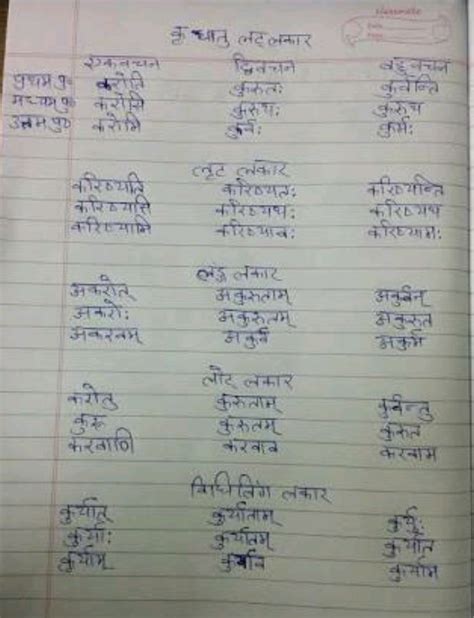 classmate
Date
Page
कृ धातु लट् लकार
एकवचन द्विवचन बहुवचन
प्रथम पु० करोति कुरुतः कुर्वन्ति
मध्यम पु० करोसि कुरुथः कुरुथ
उत्तम पु० करोमि कुर्वः कुर्मः
लृट लकार
करिष्यति करिष्यतः करिष्यन्ति
करिष्यसि करिष्यथः करिष्यथ
करिष्यामि करिष्यावः करिष्यामः
लङ्ग लकार
अकरोत् अकुरुताम् अकुर्वन्
अकरोः अकुरुतम् अकुरुत
अकरवम् अकुर्व अकुर्म
लोट् लकार
करोतु कुरुताम् कुर्वन्तु
कुरु कुरुतम् कुरुत
करवाणि करवाव करवाम
विधिलिंग लकार
कुर्यात् कुर्याताम् कुर्युः
कुर्याः कुर्यातम् कुर्यात
कुर्याम् कुर्याव कुर्याम